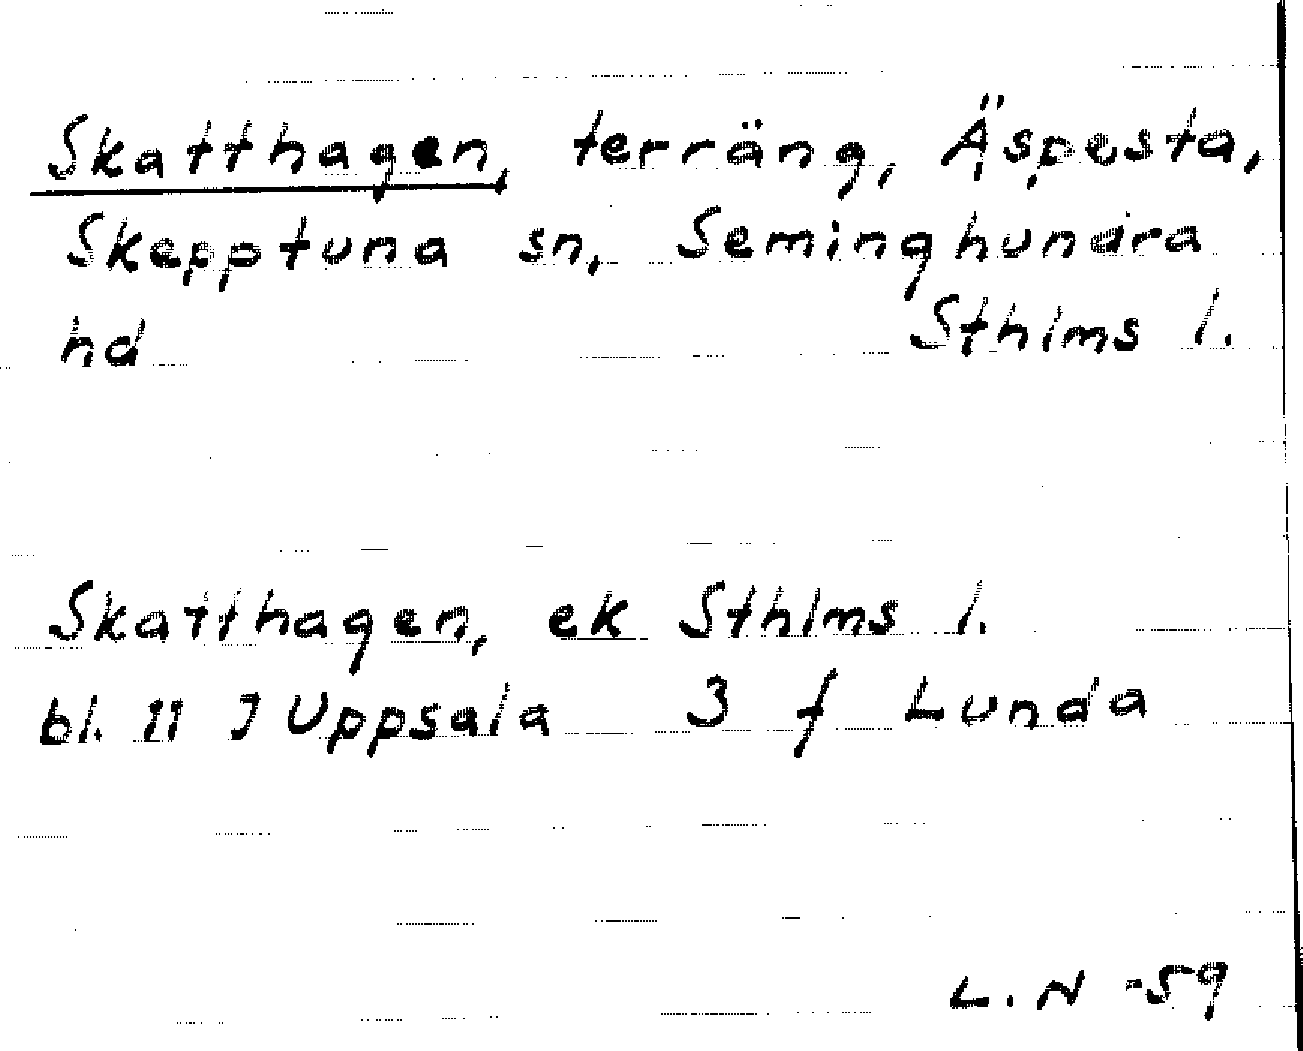 Skatthagen, terräng, Äspesta,
Skepptuna sn, Seminghundra
hd Sthlms l.
Skatthagen, ek Sthlms l.
bl. 11 J Uppsala 3 f Lunda
L. N -59